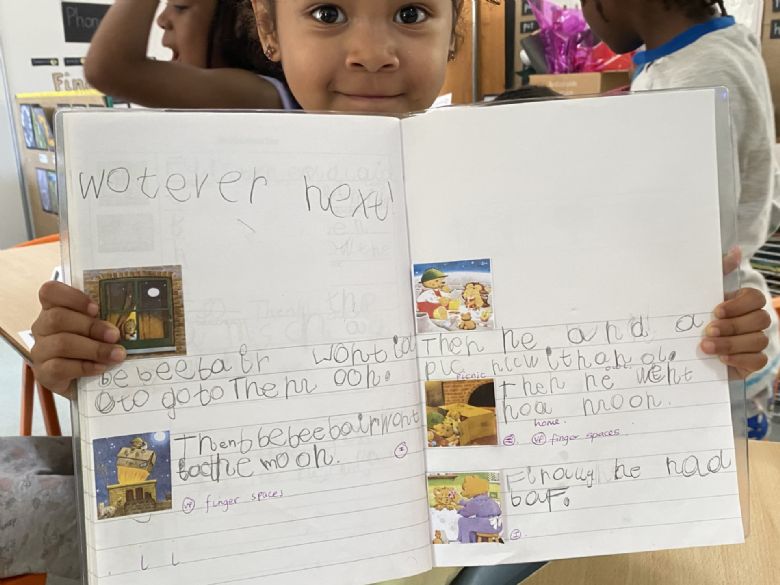 Phon
Fin
woterer next!
bebeebair wont to
oto go to The m ooh.
Then bebeebair wont
to the mooh.
I
VF finger spaces
Then he and a
pic nic withan ol.
Picnic
owl.
Then he went
hoa mooh.
home.
VF finger spaces
Finally he had
baf.
I